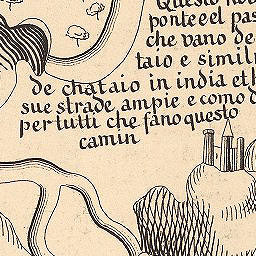 Questo
ponte e el pas
che vano de
taio e simil
de chataio in india et
sue strade ampie e como
per tutti che fano questo
camin